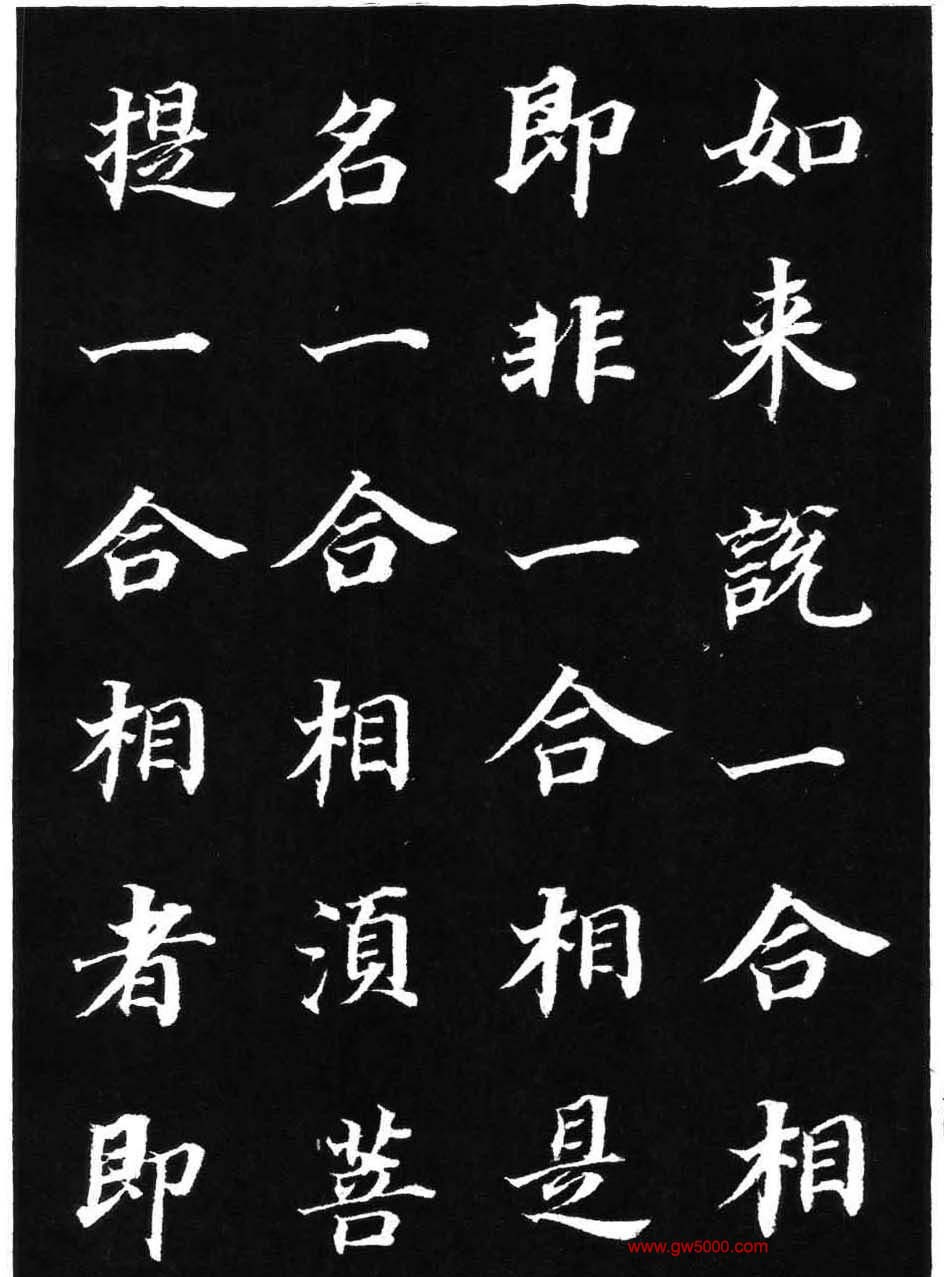 如来說一合相
即非一合相是
名一合相湏菩
提一合相者即
www.gw5000.com